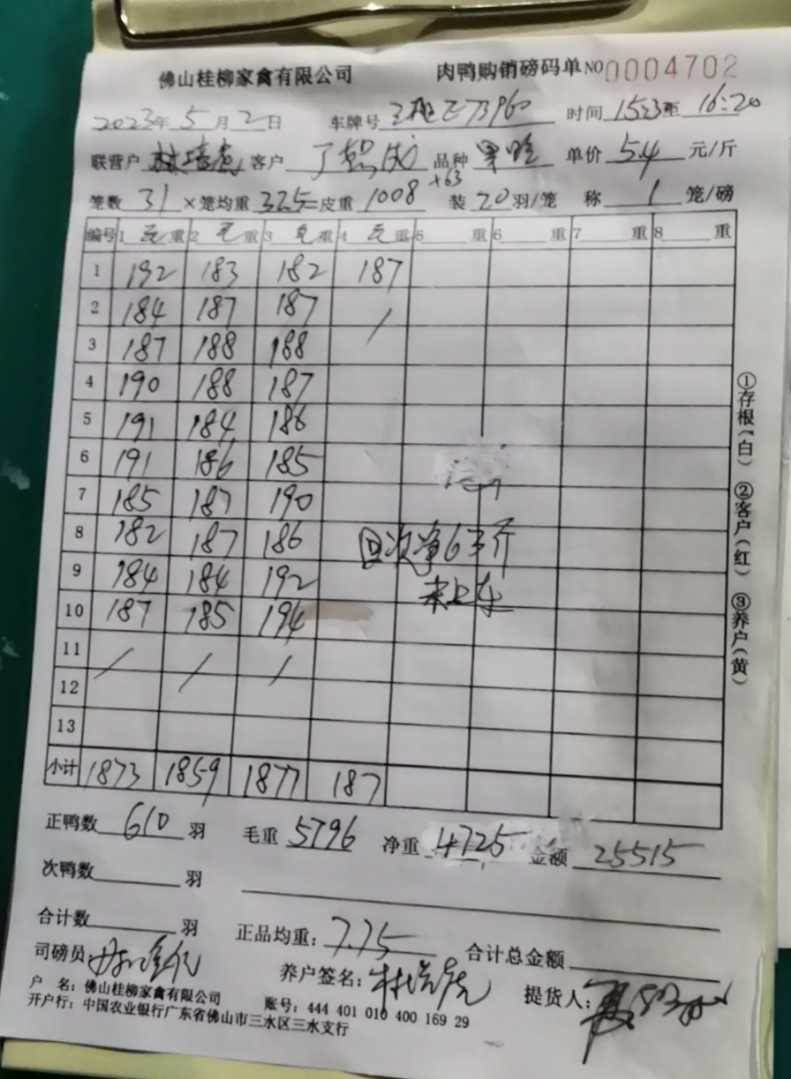 佛山桂柳家禽有限公司 肉鸭购销磅码单 NO 0004702
2023年5月2日 车牌号 E73960 时间 1523至 16:20
联营户 客户 品种 单价 5.4 元/斤
+63
笼数 31 ×笼均重 32.5=皮重 1008 装 20 羽/笼 称 1 笼/磅
编号 1 毛 重 2 毛 重 3 毛 重 4 毛 重 5 重 6 重 7 重 8 重
1 192 183 182 187
2 184 187 187 /
3 187 188 188
4 190 188 187
5 191 184 186
6 191 186 185
7 185 187 190
8 182 187 186
9 184 184 192
10 187 185 194
11 / / /
12
13
小计 1873 1859 1877 187
回次净6斤
未上车
①存根(白) ②客户(红) ③养户(黄)
正鸭数 610 羽 毛重 5796 净重 4725 金额 25515
次鸭数 羽
合计数 羽 正品均重: 7.75 合计总金额
司磅员 养户签名: 提货人:
户 名: 佛山桂柳家禽有限公司 账号: 444 401 010 400 169 29
开户行: 中国农业银行广东省佛山市三水区三水支行